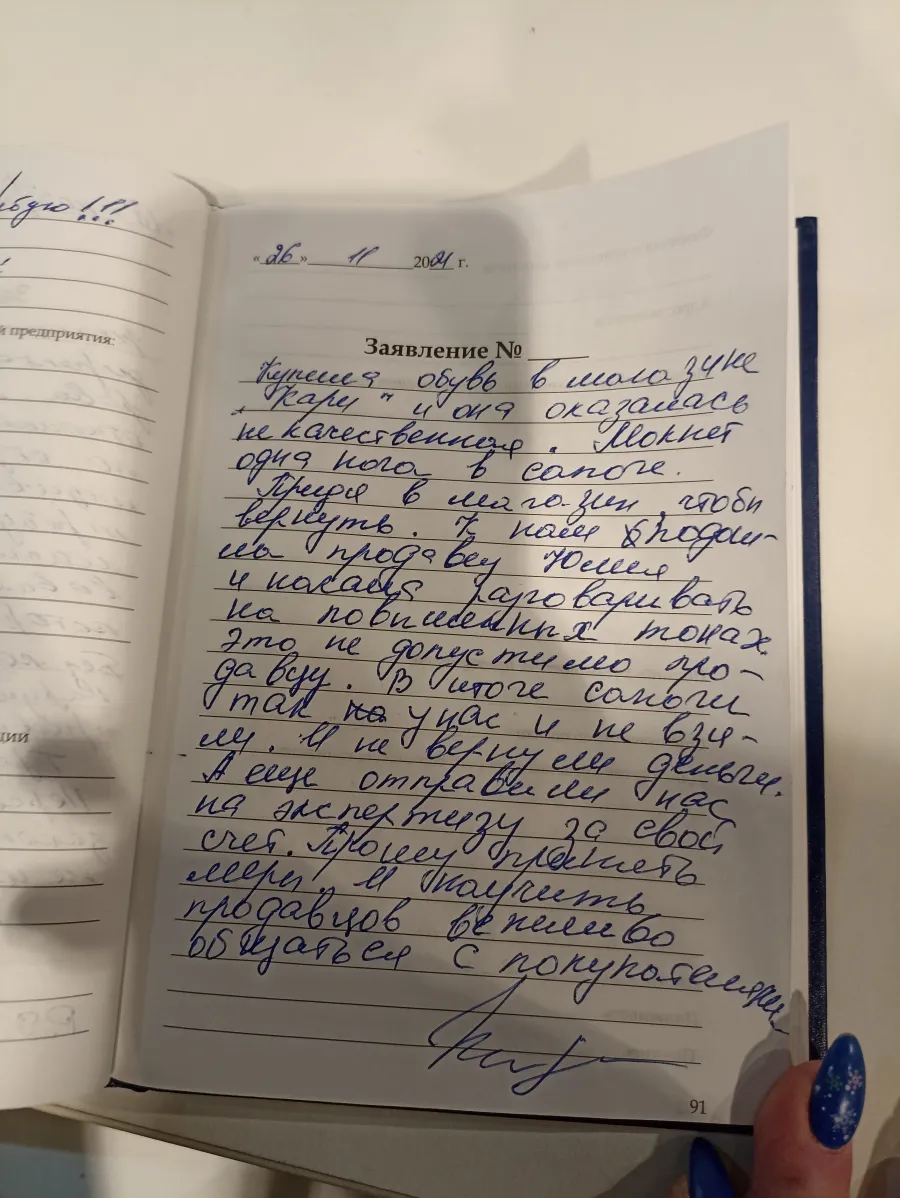 ебую !!!
й предприятия:
ций
« 26 » 11 2021 г.
Заявление №
Купила обувь в магазине
"Кари" и она оказалась
не качественная. Мокнет
одна нога в сапоге.
Придя в магазин, чтобы
вернуть. К нам подош-
ла продавец Юлия
и начала разговаривать
на повышенных тонах.
Это не допустимо про-
давцу. В итоге сапоги
так у нас и не взя-
ли. И не вернули деньги.
А еще отправили нас
на экспертизу за свой
счет. Прошу принять
меры. И научить
продавцов вежливо
общаться с покупателями
91